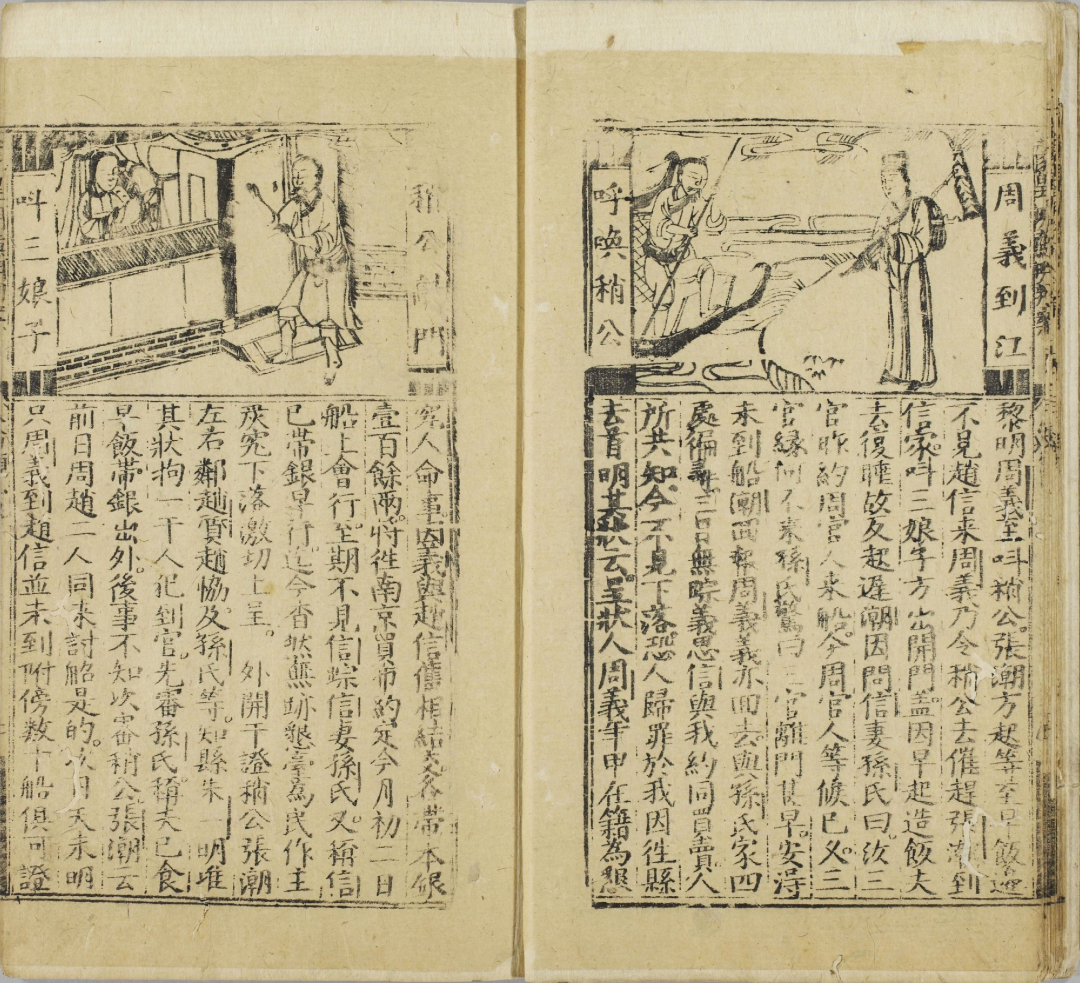 周義到江
呼喚稍公
黎明周義至叫稍公張潮方起等至早飯過
不見趙信来周義乃令稍公去催趕張潮到
信家叫三娘子方出開門盖因早起造飯夫
去復睡故反起遲潮因問信妻孫氏曰汝三
官昨約周官人来船今周官人等候已久三
官縁何不来孫氏驚曰三官離門甚早安得
未到船潮回報周義義亦回去與孫氏家四
處徧尋三日無踪義思信與我約同買賣人
所共知今不見下落恐人歸罪於我因徃縣
去首明其狀云呈狀人周義年甲在籍為懇
稍公敲門
叫三娘子
究人命事因義與趙信舊相結交各帶本銀
壹百餘両將徃南京買布約定今月初二日
船上會行至期不見信踪信妻孫氏又稱信
已帶銀早行迄今杳然無跡懇臺為民作主
戾究下落激切上呈 外開干證稍公張潮
左右鄰趙質趙協及孫氏等知縣朱一明准
其狀拘一干人犯到官先審孫氏稱夫已食
早飯帶銀出外後事不知次審稍公張潮云
前日周趙二人同来討船是的次日天未明
只周義到趙信並未到附傍数十船俱可證